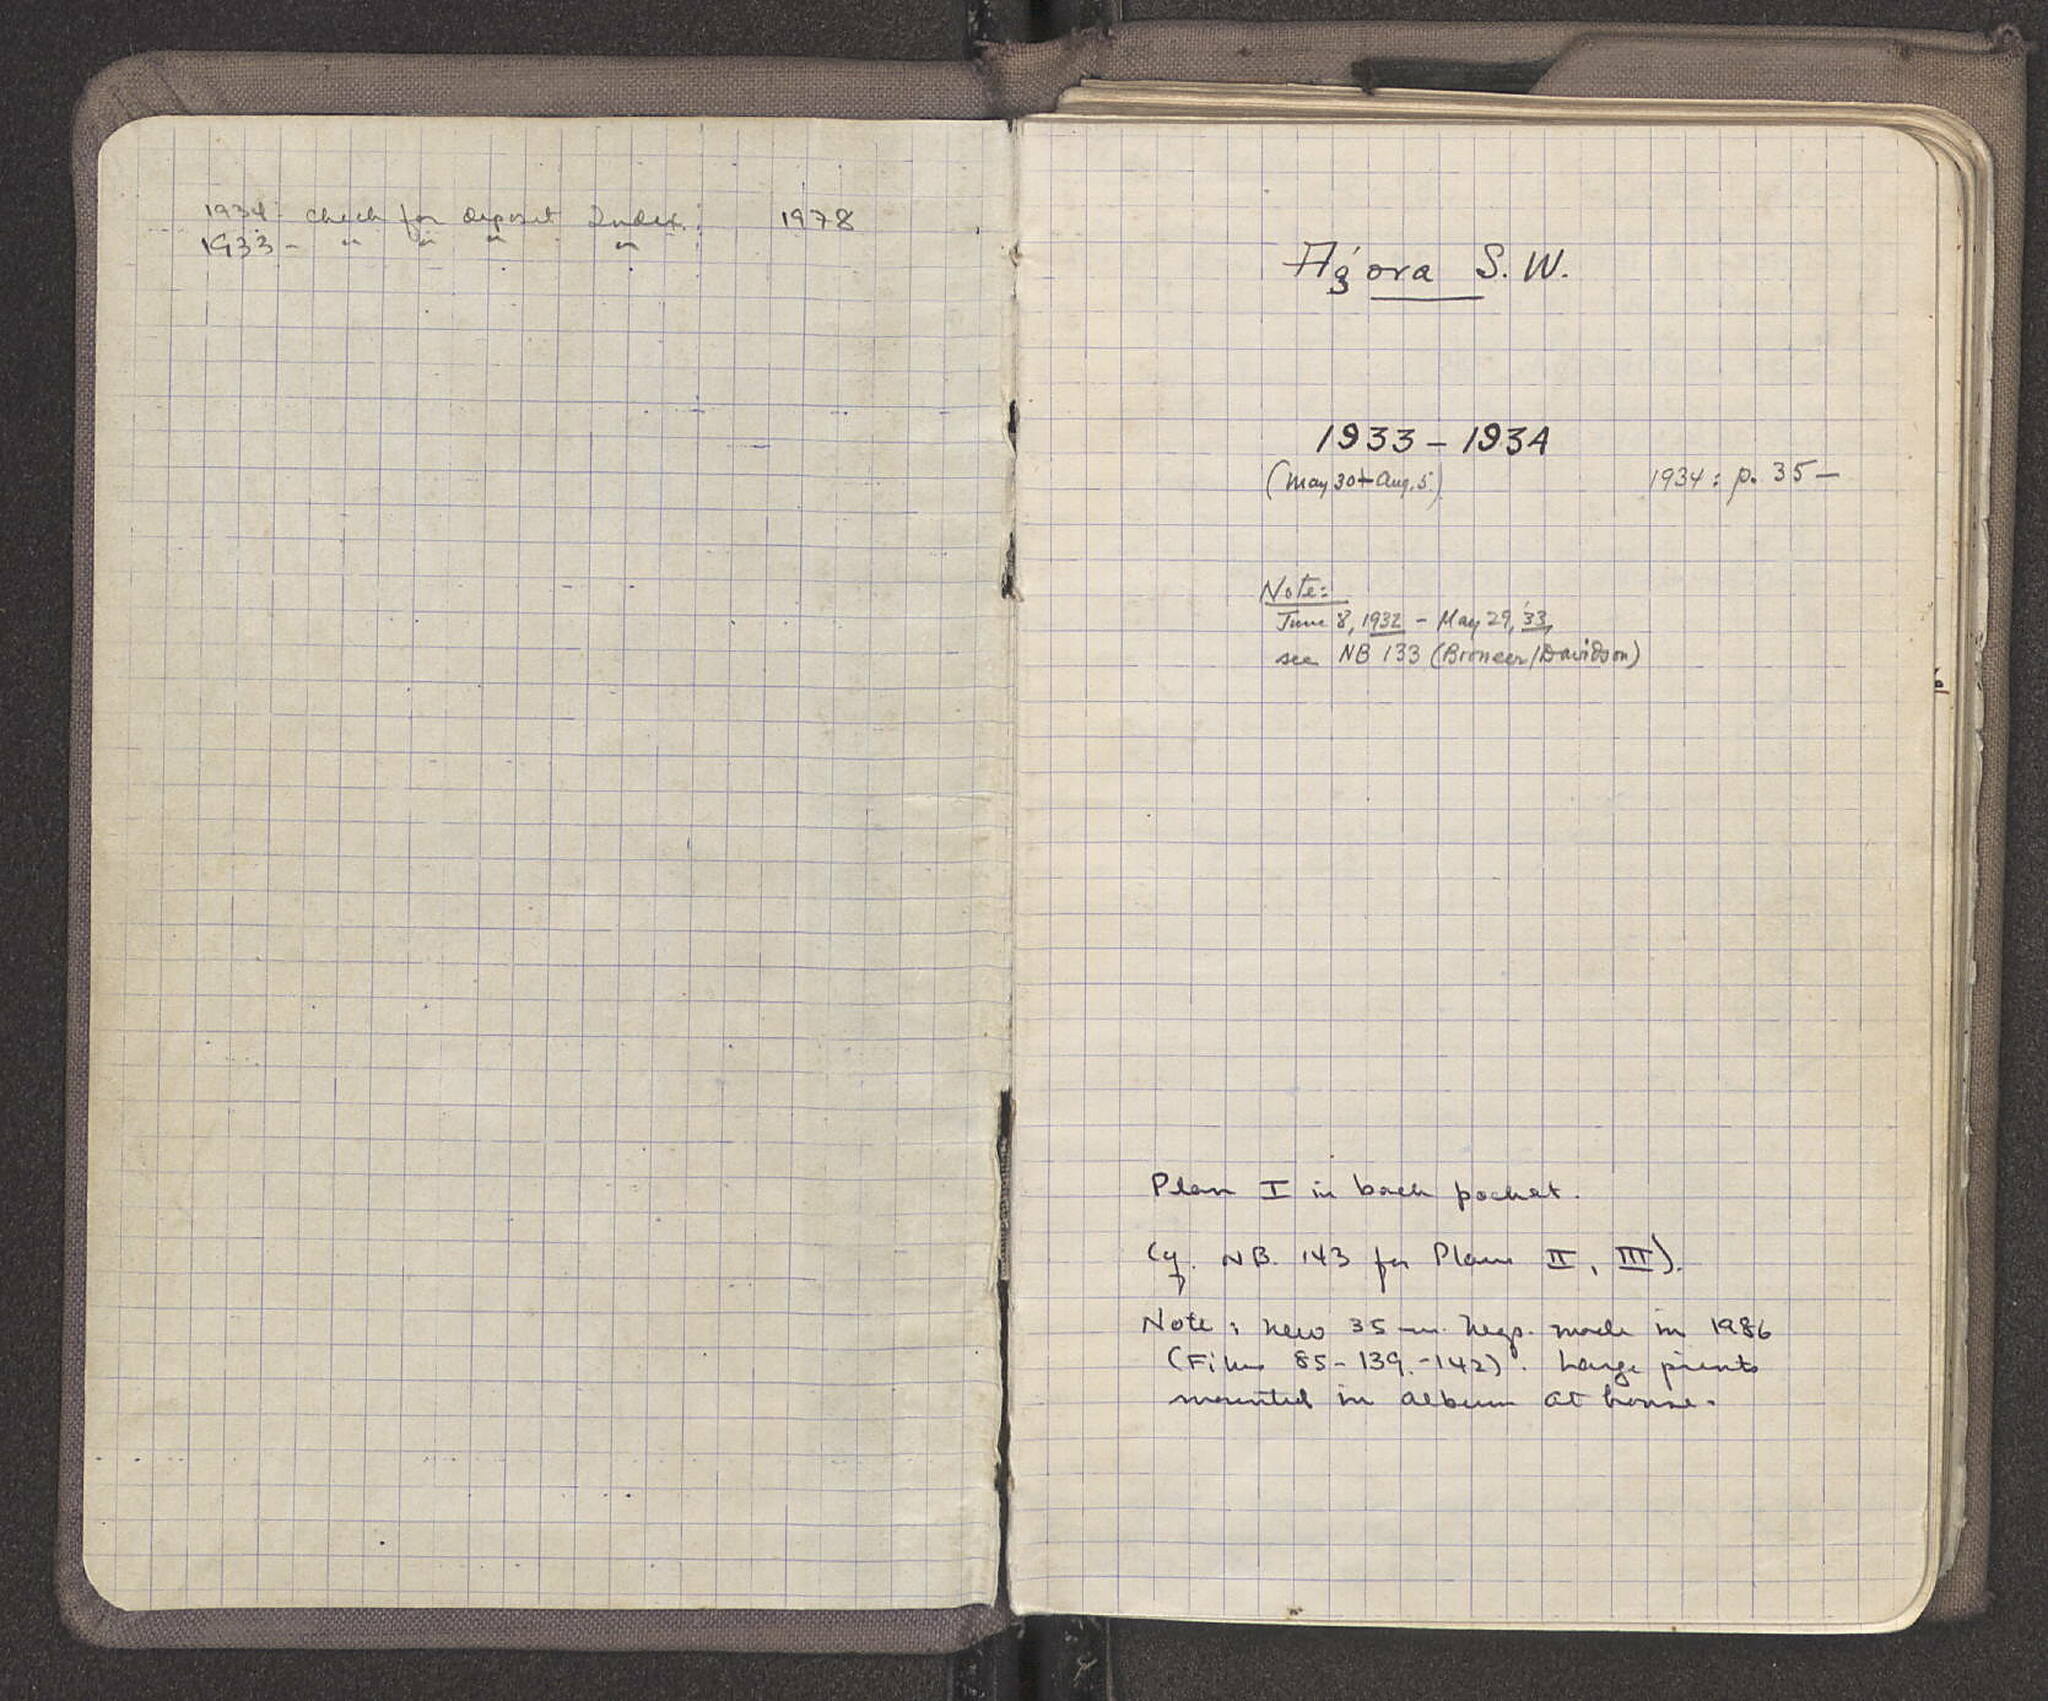 1934 - check for deposit Index: 1978
1933 - " " " "
Agora S.W.
1933 - 1934
(May 30 + Aug. 5.)
1934: p. 35 —
Note:
June 8, 1932 - May 29, '33,
see NB 133 (Broneer/Davidson)
Plan I in back pocket.
(cf. NB. 143 for Plans II, III).
Note: new 35 mm. negs. made in 1986
(Films 85-139.-142). Large prints
mounted in album at house.